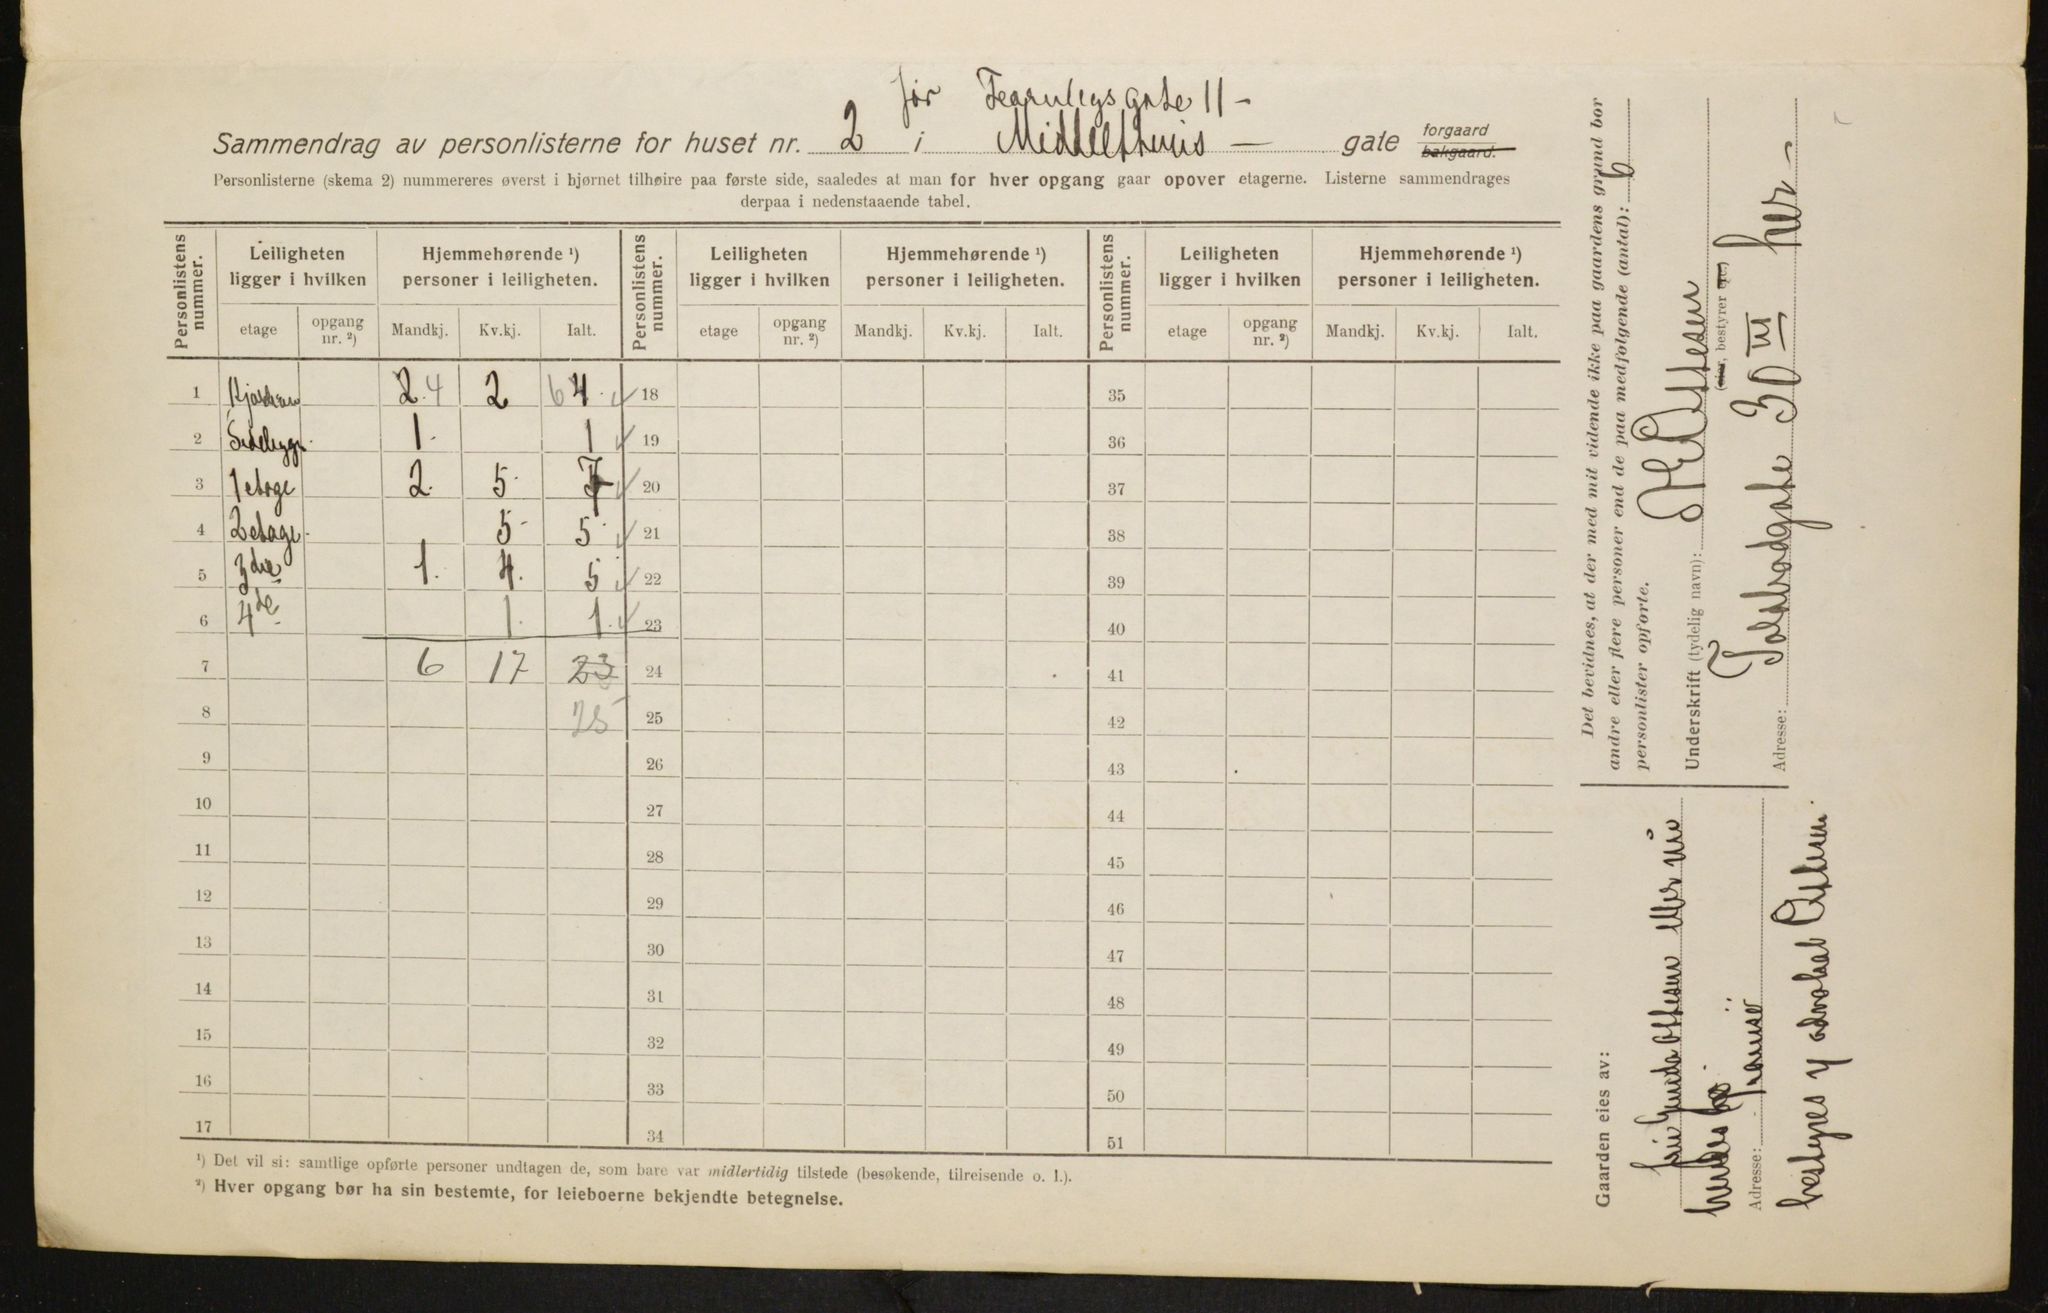 før Fearnleysgate 11 –
Sammendrag av personlisterne for huset nr. 2 i Middelthuns – gate forgaard bakgaard.
Personlisterne (skema 2) nummereres øverst i hjørnet tilhøire paa første side, saaledes at man for hver opgang gaar opover etagerne. Listerne sammendrages
derpaa i nedenstaaende tabel.
Personlistens nummer. Leiligheten ligger i hvilken Hjemmehørende ¹) personer i leiligheten. Personlistens nummer. Leiligheten ligger i hvilken Hjemmehørende ¹) personer i leiligheten. Personlistens nummer. Leiligheten ligger i hvilken Hjemmehørende ¹) personer i leiligheten.
etage opgang nr. ²) Mandkj. Kv.kj. Ialt. etage opgang nr. ²) Mandkj. Kv.kj. Ialt. etage opgang nr. ²) Mandkj. Kv.kj. Ialt.
1 Kjælderen 2. 4 2 6 4. 18 35
2 Sidebygn. 1. 1 19 36
3 1 etage 2. 5. 7 20 37
4 2 etage. 5. 5. 21 38
5 3die 1. 4. 5 22 39
6 4de 1. 1. 23 40
7 6 17 23 24 41
8 25 25 42
9 26 43
10 27 44
11 28 45
12 29 46
13 30 47
14 31 48
15 32 49
16 33 50
17 34 51
¹) Det vil si: samtlige opførte personer undtagen de, som bare var midlertidig tilstede (besøkende, tilreisende o. l.).
²) Hver opgang bør ha sin bestemte, for leieboerne bekjendte betegnelse.
Det bevidnes, at der med mit vidende ikke paa gaardens grund bor
andre eller flere personer end de paa medfølgende (antal): 6
personlister opførte.
Underskrift (tydelig navn): Ottesen
(eier, bestyrer etc)
Adresse: Toldbodgate 30 III her –
Gaarden eies av:
Ottesen
Adresse:
bestyres advokat Ottesen.